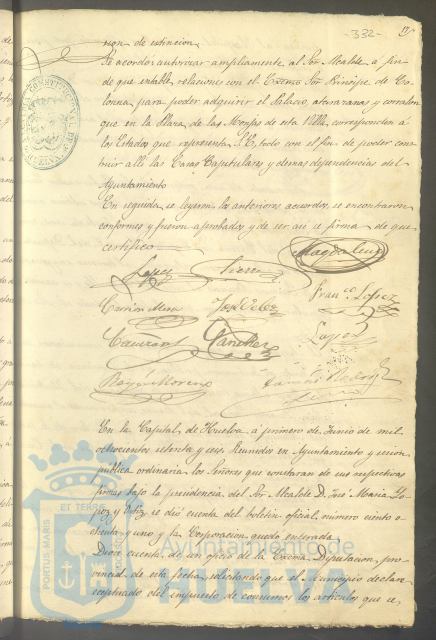 -332-
sion de estincion.
Se acordó autorizar ampliamente al Sor Alcalde á fin
de que entable relaciones con el Excmo Sor Principe de Co-
lonna, para poder adquirir el Palacio, atarazanas y corralon
que en la Plaza de las Monjas de esta Villa, corresponden á
los Estados que representa S.E. todo con el fin de poder cons-
truir allí las Casas Capitulares y demas dependencias del
Ayuntamiento
En seguida se leyeron los anteriores acuerdos, se encontraron
conformes y fueron aprobados y de ser asi se firma de que
certifico
Lopez
Franco Lopez
Carrion Mesa
Sanchez
Lopez
En la Capital de Huelva á primero de Junio de mil
ochocientos setenta y seis. Reunidos en Ayuntamiento y sesion
publica ordinaria los Señores que constaran de sus respectivas
firmas bajo la presidencia del Sor Alcalde D. José Maria Lo-
pez y se dió cuenta del boletin oficial, número ciento o-
chenta y uno y la Corporacion quedó enterada.
Diose cuenta de un oficio de la Excma Diputacion pro-
vincial de esta fecha, solicitando que el Municipio declare
exceptuado del impuesto de consumos los articulos que se
PORTUS MARIS
ET TERRAE
Ayuntamiento de
HUELVA